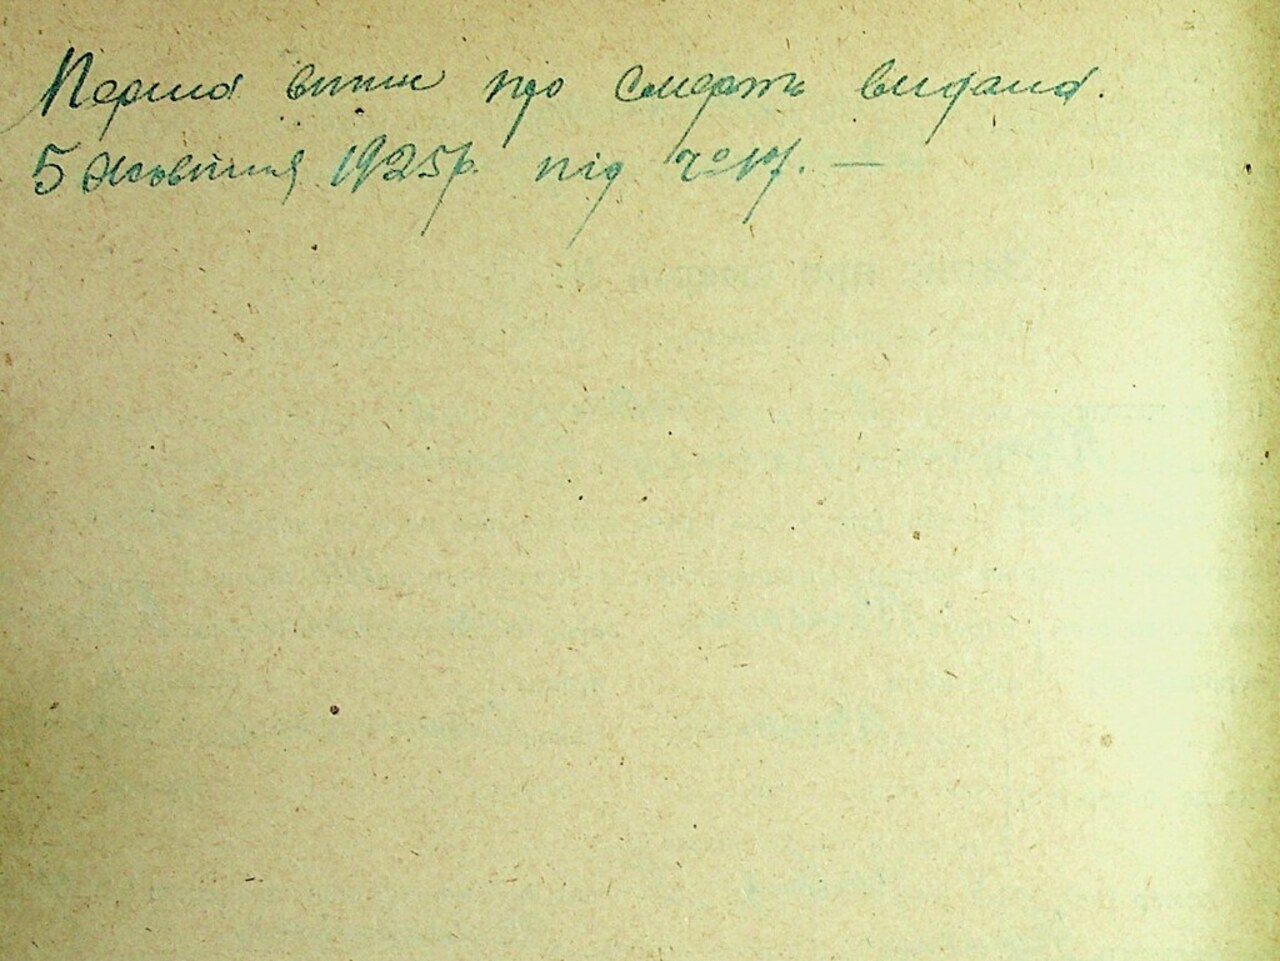 Перша випись про смерть видана.
5 жовтня 1925р. під ч° 17. —